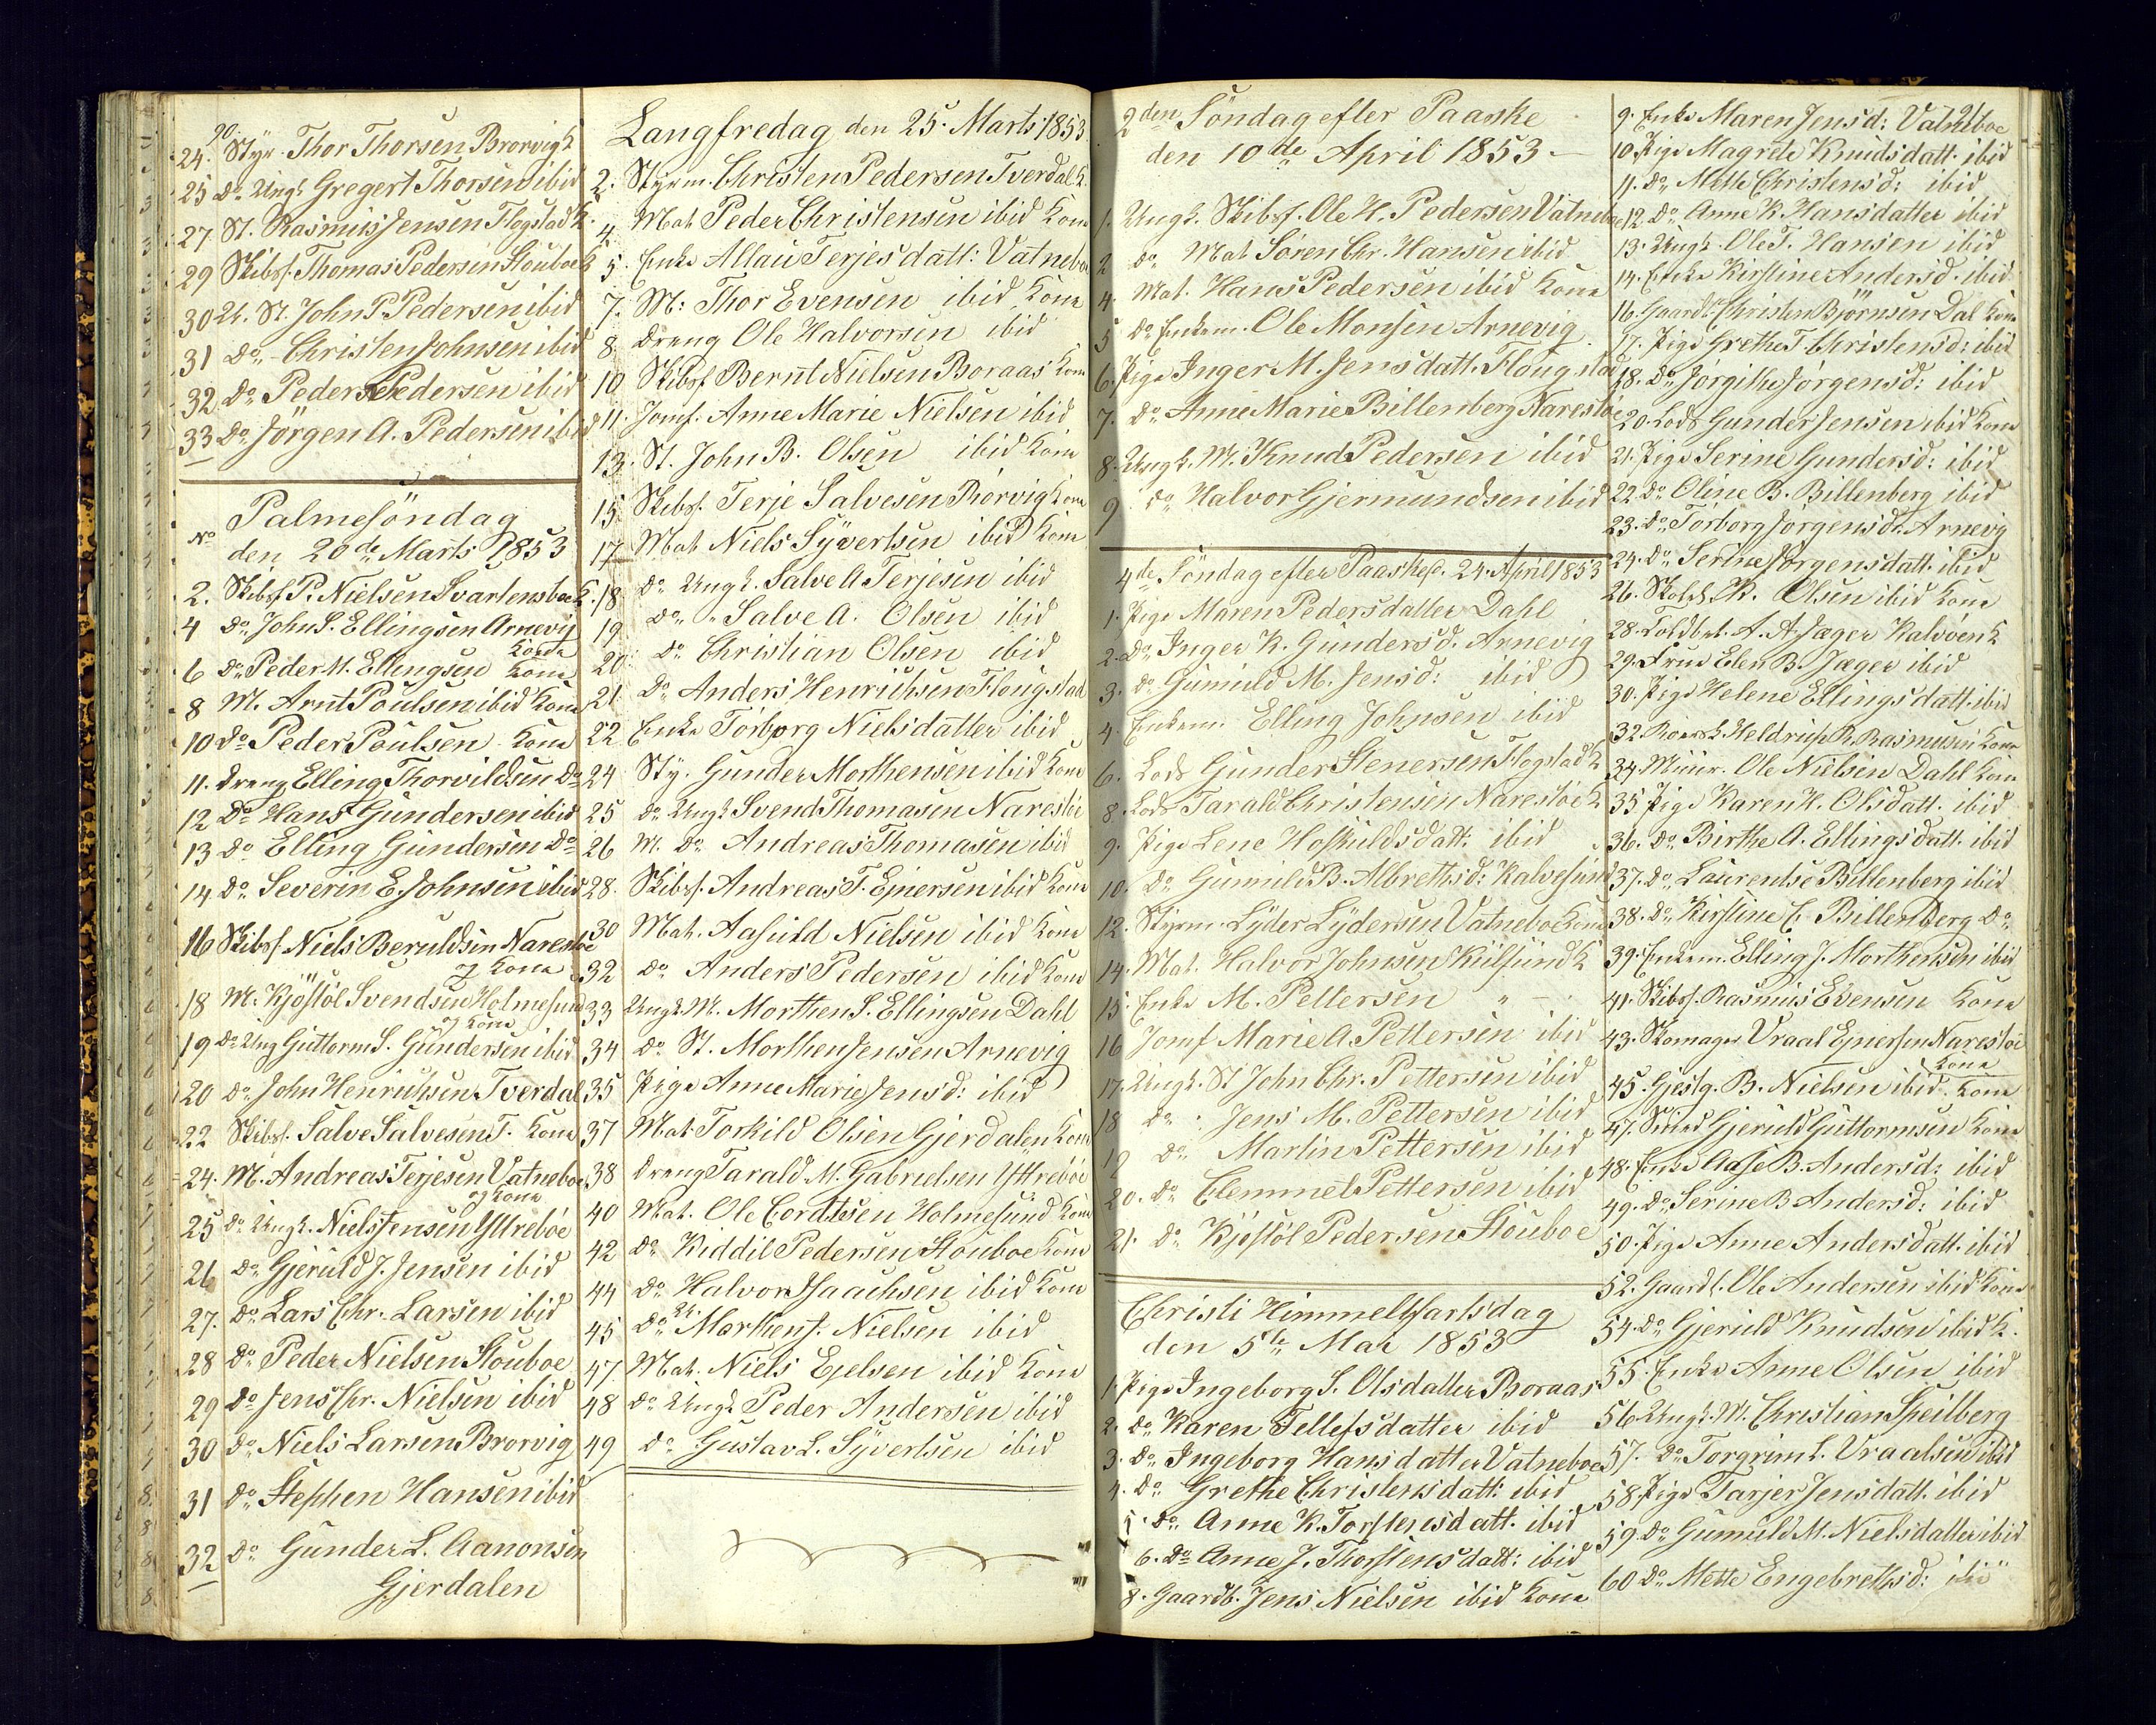 20
24. Styr. Thor Thorsen Brorvig K
25 Do Ungk Gregert Thorsen ibid
27. St. Rasmus Jensen Flogstad K.
29 Skibsf. Thomas Pedersen Stouboe K
30 U. St. John P. Pedersen ibid
31 Do Christen Johnsen ibid
32 Do Peder Pedersen ibid
33 Do Jörgen A. Pedersen ibid
No Palmesöndag
den 20de Marts 1853
2. Skibsf P. Nielsen Svartensboe K.
4 Do John S. Ellingsen Arnevig
Kona
6 Do Peder M. Ellingsen Kona
8 M. Arnt Poulsen ibid Kona
10 Do Peder Poulsen Kona
11. Dreng Elling Thorvildsen Do
12 Do Hans Gundersen ibid
13 Do Elling Gundersen Do
14. Do Severin E. Johnsen ibid
16 Skibsf Niels Beruldsen Narestöe
og Kona
18 M. Kjöstöl Svendsen Holmesund
og Kona
19 Do Ung Guttorm S. Gundersen ibid
20 Do John Henrichsen Tverdal
22 Skibsf. Salve Salvesen T. Kona
24. M. Andreas Terjesen Vatneboe
og Kona
25 Do Ungk. Niels Jensen Yttreböe
26 Do Gjeruld J. Jensen ibid
27. Do Lars Chr. Larsen ibid
28 Do Peder Nielsen Stouboe
29 Do Jens Chr. Nielsen ibid
30 Do Niels Larsen Brorvig
31 Do Stephen Hansen ibid
32 Do Gunder L. Aanonsen
Gjerdalen
Langfredag den 25. Marts 1853
2. Styrm. Christen Pedersen Tverdal K.
4. Mat Peder Christensen ibid Kona
5. Enke Allau Terjesdatt: Vatneboe
7. M: Thor Evensen ibid Kona
8 Dreng Ole Halvorsen ibid
10 Skibsf Bernt Nielsen Boraas Kona
11. Jomf. Anne Marie Nielsen ibid
13. St. John B. Olsen ibid Kona
15 Skibsf. Terje Salvesen Brorvig Kona
17 Mat Niels Syvertsen ibid Kona
18 Do Ungk. Salve A Terjesen ibid
19 Do " Salve A. Olsen ibid
20 Do Christian Olsen ibid
21 Do Anders Henrichsen Flougstad
22 Enke Torborg Nielsdatter ibid
24 Sty. Gunder Morthensen ibid Kona
25 Do Ungk Svend Thomasen Narestöe
26 M. Do Andreas Thomasen ibid
28. Skibsf. Andreas T. Ejnersen ibid Kona
30 Mat. Aasuld Nielsen ibid Kona
32 Do Anders Pedersen ibid Kona
33 Ungk. M. Morthen S. Ellingsen Dahl
34 Do St. Morthen Jensen Arnevig
35 Pige Anne Marie Jensd: ibid
37 Mat Torkild Olsen Gjerdalen Kona
38 Dreng Tarald M. Gabrielsen Yttreböe
40 Mat. Ole Cordtsen Holmesund Kona
42 Do Kiddil Pedersen Stouboe Kona
44 Do Halvor Isaachsen ibid Kona
45 Do U. Morthen J. Nielsen ibid
47. Mat. Niels Ejelsen ibid Kona
48 Do Ungk Peder Andersen ibid
49 Do Gustav L. Syvertsen ibid
2den Söndag efter Paaske
den 10de April 1853
1. Ungk. Skibsf. Ole H. Pedersen Vatneboe
2 Do Mat Sören Chr. Hansen ibid
4. Mat. Hans Pedersen ibid Kona
5 Do Enkem. Ole Monsen Arnevig
6. Pige Inger M. Jensdatt. Flougstad
7. Do Anne Marie Billenberg Narestöe
8. Ungk. M. Knud Pedersen ibid
9 Do Halvor Gjermundsen ibid
4de Söndag efter Paaske d. 24. April 1853
1. Pige Maren Pedersdatter Dahl
2. Do Inger K. Gundersd. Arnevig
3. Do Gunuld M. Jensd: ibid
4. Enkem. Elling Johnsen ibid
6. Lods Gunder Stenersen Flogstad K
8. Lods Tarald Christensen Narestöe K
9. Pige Lene Hoskuldsdatt: ibid
10. Do Gunuld B. Albrethsd: Kalvesund
12. Styrm. Lyder Lydersen Vatneboe Kona
14. Mat. Halvor Johnsen Kiilsund K
15. Enke M. Pettersen " —
16 Jomf Marie A. Pettersen ibid
17. Ungk. St John Chr. Pettersen ibid
18 Do Jens M. Pettersen ibid
19 Do Martin Pettersen ibid
20. Do Clemmel Pettersen ibid
21. Do Kjöstöl Pedersen Stouboe
Christi Himmelfartsdag
den 5te Mai 1853
1. Pige Ingeborg S. Olsdatter Boraas
2. Do Karen Tellefsdatter ibid
3. Do Ingeborg Hansdatter Vatneboe
4. Do Grethe Christensdatt: ibid
5. Do Anne K. Torstensdatt. ibid
6. Do Anne J. Thorstensdatt: ibid
8. Gaardb. Jens Nielsen ibid Kona
21
9. Enke Maren Jensd: Vatneboe
10. Pige Magrete Knudsdatt. ibid
11. Do Mette Christensd: ibid
12. Do Anne K. Hansdatter ibid
13. Ungk. Ole T. Hansen ibid
14. Enke Kirstine Andersd. ibid
16. Gaardb. Christen Björnsen Dal Kona
17. Pige Grethe T. Christensd: ibid
18. Do Jörgithe Jörgensd: ibid
20. Lods Gunder Jensen ibid Kona
21. Pige Serine Gundersd: ibid
22. Do Oline B. Billenberg ibid
23. Do Torborg Jörgensd. Arnevig
24. Do Serine Jörgensdatt. ibid
26. Skolh. K. Olsen ibid Kona
28. Toldbet. A. A. Jæger Kalvöen K
29. Frue Elen B. Jæger ibid
30. Pige Helene Ellingsdatt. ibid
32. R. Rasmusen Kona
34. Muur. Ole Nielsen Dahl Kona
35 Pige Karen H. Olsdatt. ibid
36. Do Birthe A. Ellingsdatt. ibid
37. Do Laurentse Billenberg ibid
38. Do Kirstine E. Billenberg Do
39. Enkem. Elling J. Morthensen ibid
41. Skibsf. Rasmus Evensen Kona
43. Skomager Vraal Ejnersen Narestöe
Kona
45. Gjestg. B. Nielsen ibid Kona
47. Smed Gjeruld Guttormsen Kona
48. Enke Aase B. Andersd: ibid
49. Do Serine B Andersd: ibid
50. Pige Anne Andersdatt. ibid
52. Gaardb. Ole Andersen ibid Kona
54. Do Gjeruld Knudsen ibid K.
55. Enke Anne Olsen ibid
56. Ungk. M. Christian Speilberg
57. Do Torgrim L. Vraalsen ibid
58. Pige Tarjer Jensdatt. ibid
59. Do Gunuld M. Nielsdatter ibid
60 Do Mette Engebrethsd: ibid